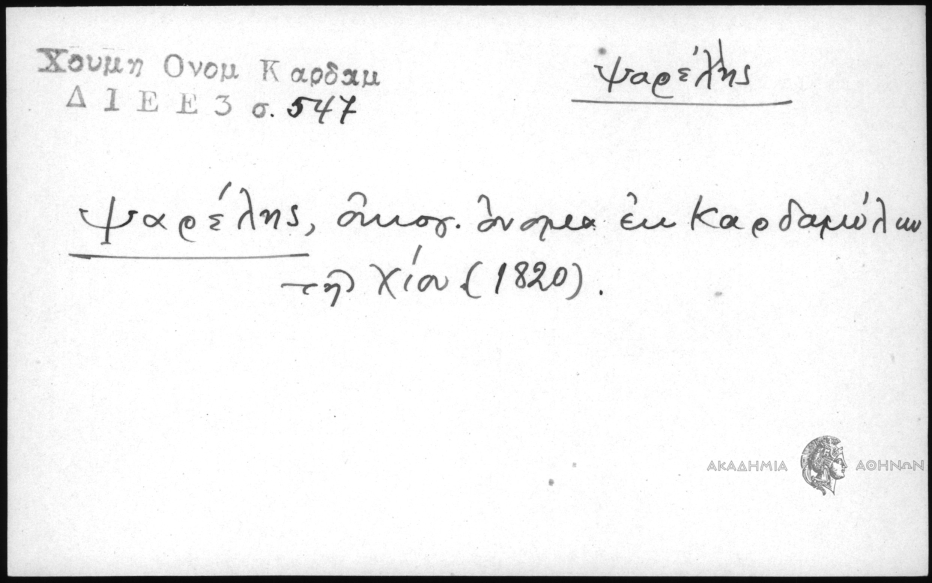 Χουμη Ονομ Καρδαμ
Δ Ι Ε Ε 3 σ. 547
Ψαρέλης
Ψαρέλης, οἰκογ. ὄνομα ἐκ Καρδαμύλων
τῆς Χίου (1820).
ΑΚΑΔΗΜΙΑ ΑΘΗΝΩΝ